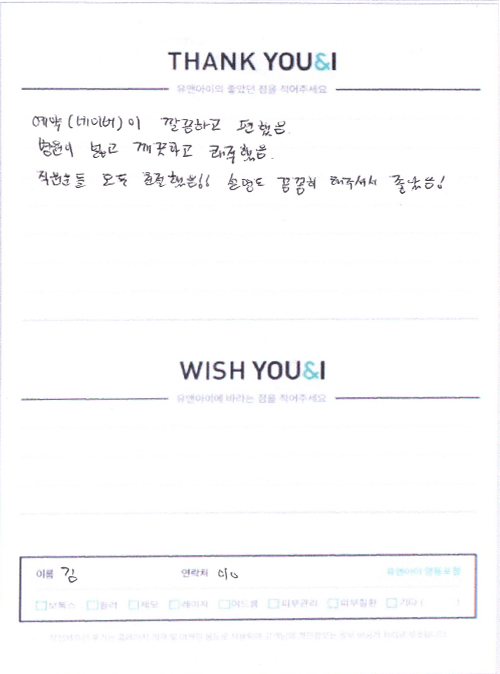 THANK YOU&I
유앤아이의 좋았던 점을 적어주세요
예약(네이버)이 깔끔하고 편했음.
병원이 넓고 깨끗하고 쾌적했음.
직원분들 모두 친절했음!! 설명도 꼼꼼히 해주셔서 좋았음!
WISH YOU&I
유앤아이에 바라는 점을 적어주세요
이름 김 연락처 010 유앤아이 영등포점
보톡스 필러 제모 레이저 여드름 피부관리 피부질환 기타 ( )